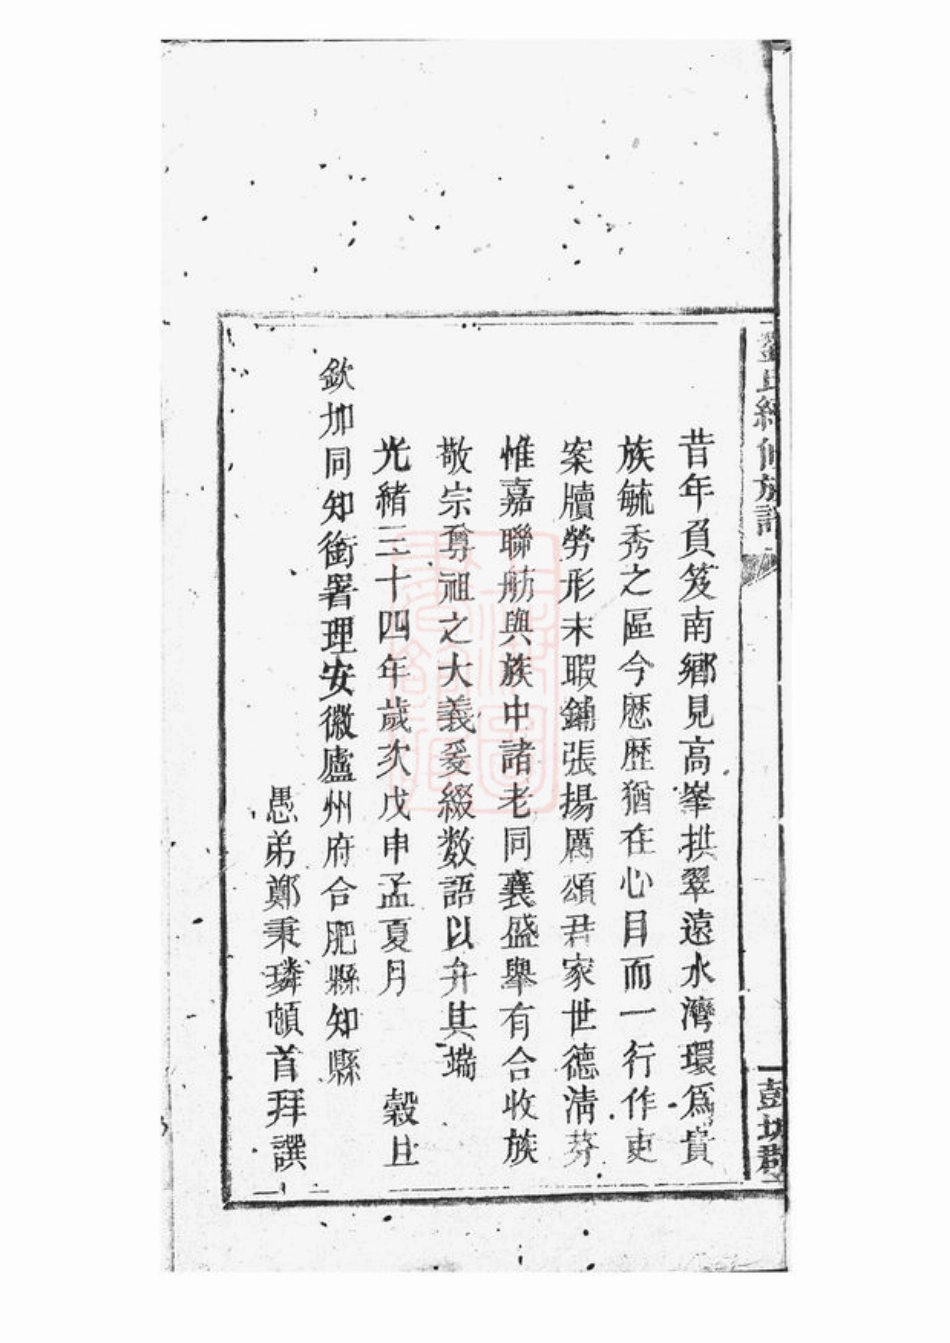 續修族譜
彭城郡
昔年負笈南鄉見高峯拱翠遠水灣環爲貴
族毓秀之區今歴歴猶在心目而一行作吏
案牘勞形未暇鋪張揚厲頌君家世德淸芬
惟嘉聯舫與族中諸老同襄盛舉有合收族
敬宗尊祖之大義爰綴数語以弁其端
光緒三十四年歲次戊申孟夏月 穀旦
欽加同知銜署理安徽廬州府合肥縣知縣
愚弟鄭秉璘頓首拜譔